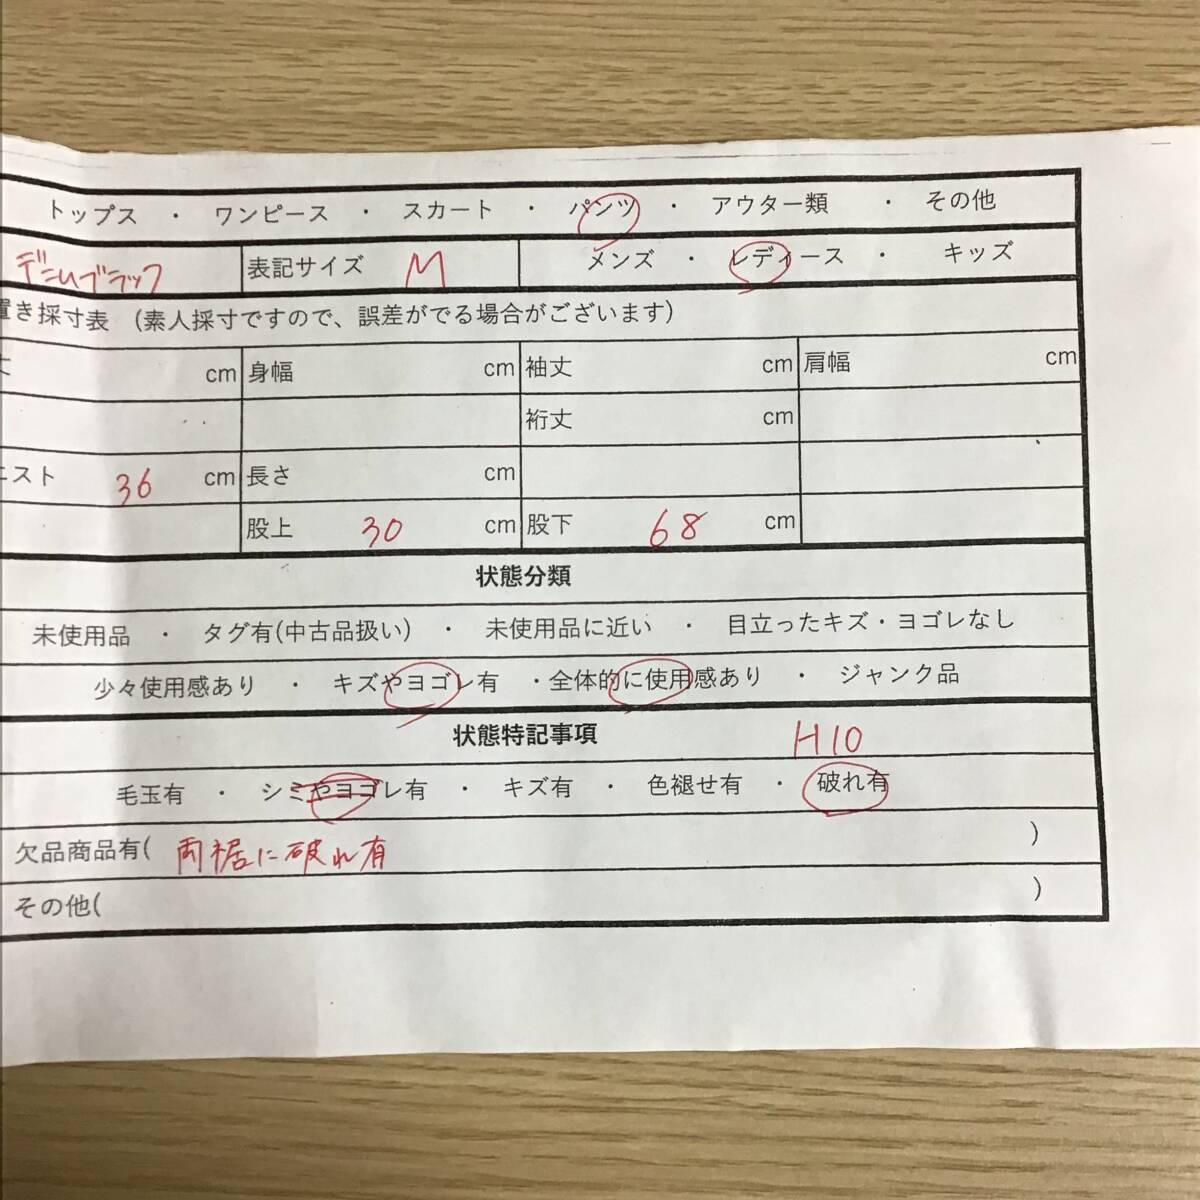 トップス ・ ワンピース ・ スカート ・ パンツ ・ アウター類 ・ その他
デニムブラック 表記サイズ M メンズ ・ レディース ・ キッズ
置き採寸表 (素人採寸ですので、誤差がでる場合がございます)
丈 cm 身幅 cm 袖丈 cm 肩幅 cm
裄丈 cm
エスト 36 cm 長さ cm
股上 30 cm 股下 68 cm
状態分類
未使用品 ・ タグ有(中古品扱い) ・ 未使用品に近い ・ 目立ったキズ・ヨゴレなし
少々使用感あり ・ キズやヨゴレ有 ・全体的に使用感あり ・ ジャンク品
状態特記事項 H10
毛玉有 ・ シミやヨゴレ有 ・ キズ有 ・ 色褪せ有 ・ 破れ有
欠品商品有( 両裾に破れ有 )
その他( )